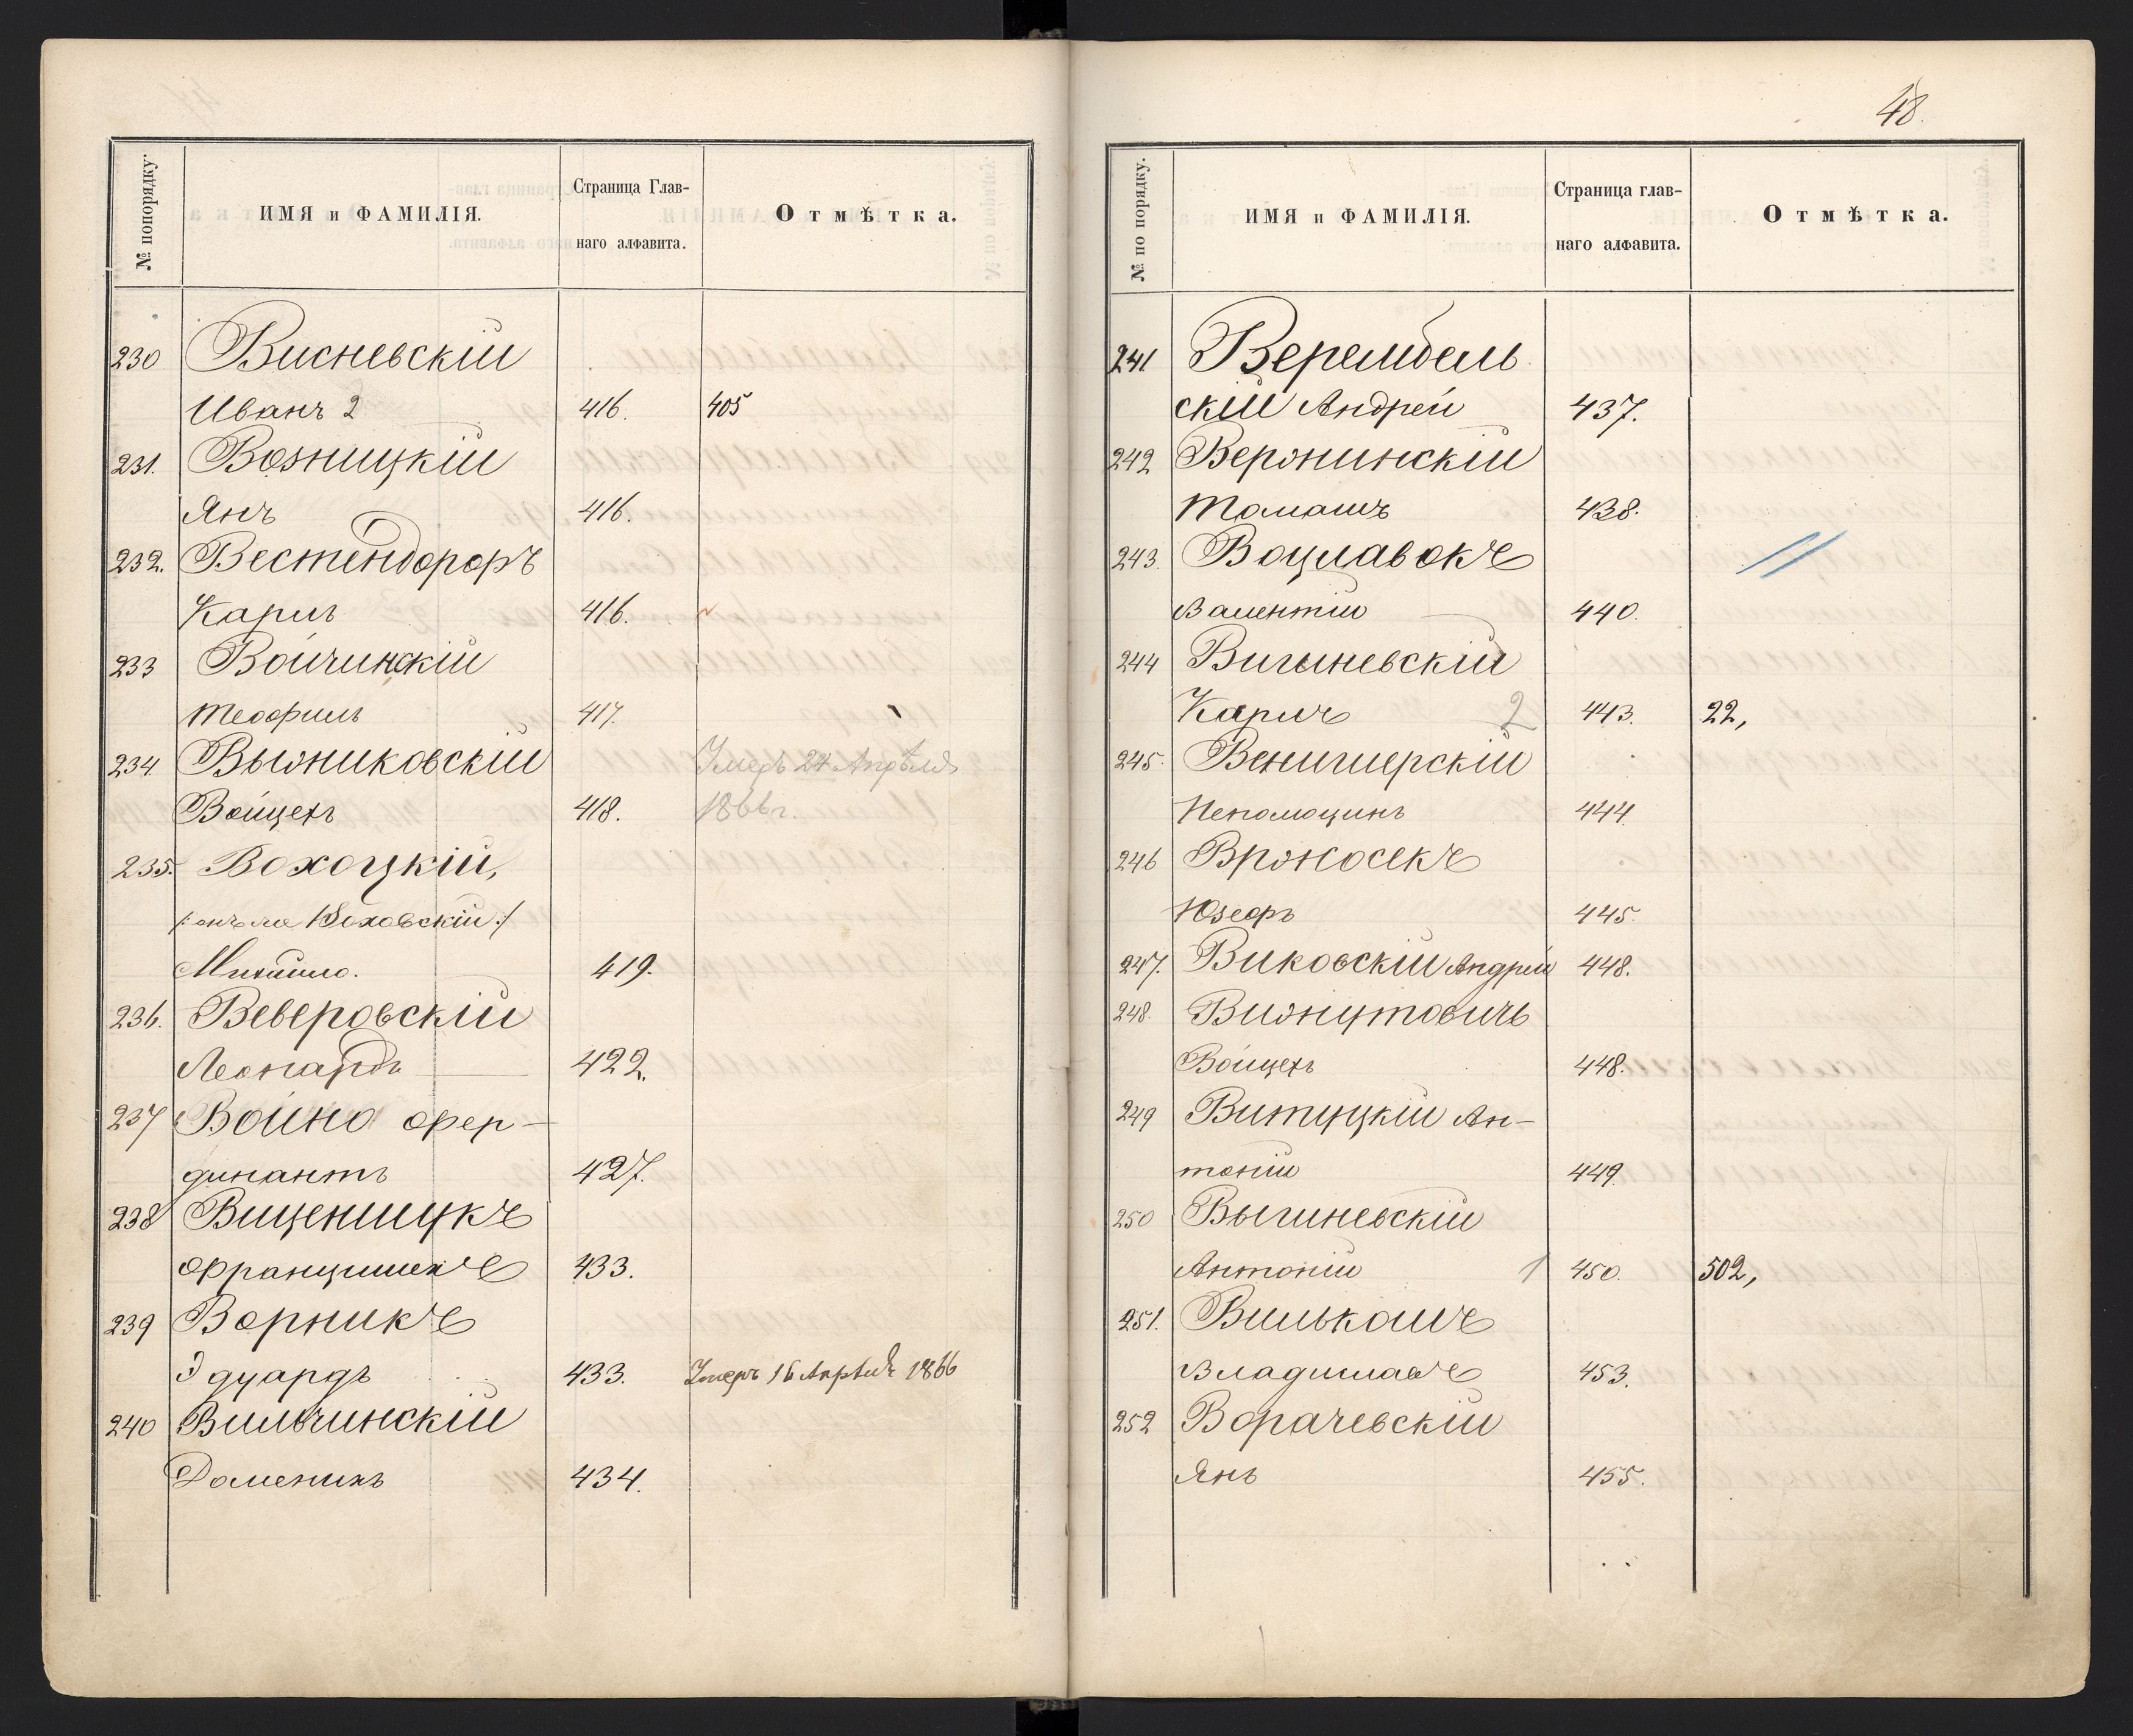 № попорядку.
ИМЯ и ФАМИЛІЯ.
Страница Глав-
наго алфавита.
Отмѣтка.
230 Висневскій
Иванъ 2 416. 405
231. Возницкій
Янъ 416.
232. Вестендорфъ
Карлъ 416.
233 Войчинскій
Теофиль 417.
234 Выжниковскій Умеръ 24 Апрѣля
Войцехъ 418. 1866 г.
235. Вохоцкій,
/: онъ же Воховскій :/
Михаилъ. 419.
236. Веверовскій
Леонардъ 422.
237 Война Фер-
динантъ 427.
238 Вищеницкъ
Францишекъ 433.
239 Ворникъ
Эдуардъ 433. Умеръ 16 Апрѣля 1866
240 Вильчинскій
Доменикъ 434.
48.
№ по порядку.
ИМЯ и ФАМИЛІЯ.
Страница глав-
наго алфавита.
Отмѣтка.
241 Верембель
скій Андрей 437.
242 Веронинскій
Томашъ 438.
243. Воцлавокъ
Валентій 440.
244
Карлъ 2 443. 22,
245. Венгиерскій
Непомоцинъ 444.
246 Вржосекъ
Юзефъ 445.
247. Виковскій Андрей 448.
248. Вижнутовичъ
Войцехъ 448.
249 Витуцкій Ан-
тоній 449.
250 Выгиневскій
Антоній 1 450. 502,
251. Вилькошъ
Владиславъ 453.
252 Ворачевскій
Янъ 455.